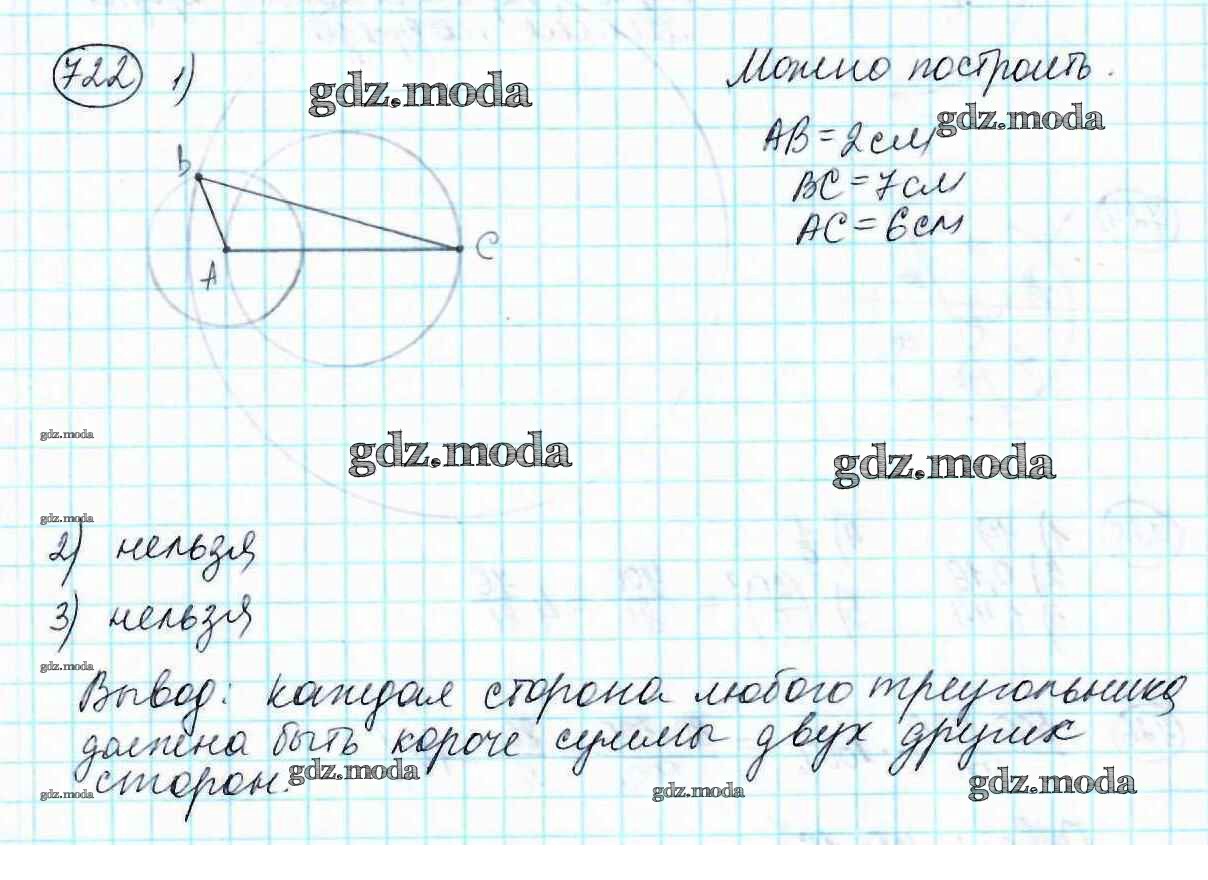 722 1) gdz.moda Можно построить.
gdz.moda
АВ = 2 см
ВС = 7 см
АС = 6 см
B
A
C
gdz.moda
gdz.moda
gdz.moda
gdz.moda
2) нельзя
3) нельзя
gdz.moda
Вывод: каждая сторона любого треугольника
должна быть короче суммы двух других
gdz.moda сторон. gdz.moda gdz.moda gdz.moda